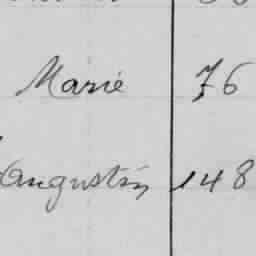 Marie 76
Augustin 148